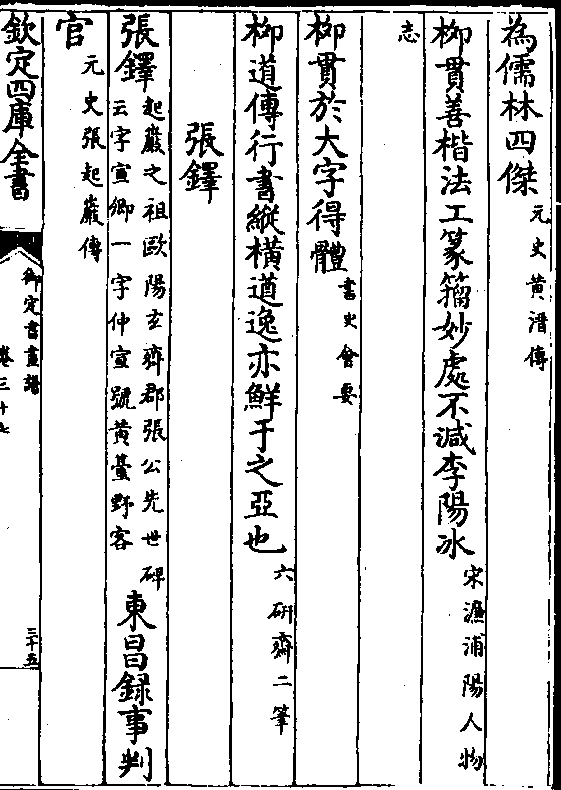 為儒林四傑元史黃溍傳
柳貫善楷法工篆籀妙處不減李陽冰宋濂浦陽人物
志
柳貫於大字得體書史會要
柳道傳行書縱橫遒逸亦鮮于之亞也六研齋二筆
張鐸
張鐸起巖之祖歐陽玄齊郡張公先世碑
云字宣卿一字仲宣號黃臺野客東昌録事判
官元史張起巖傳
欽定四庫全書
御定書畫譜
卷三十七
三十五